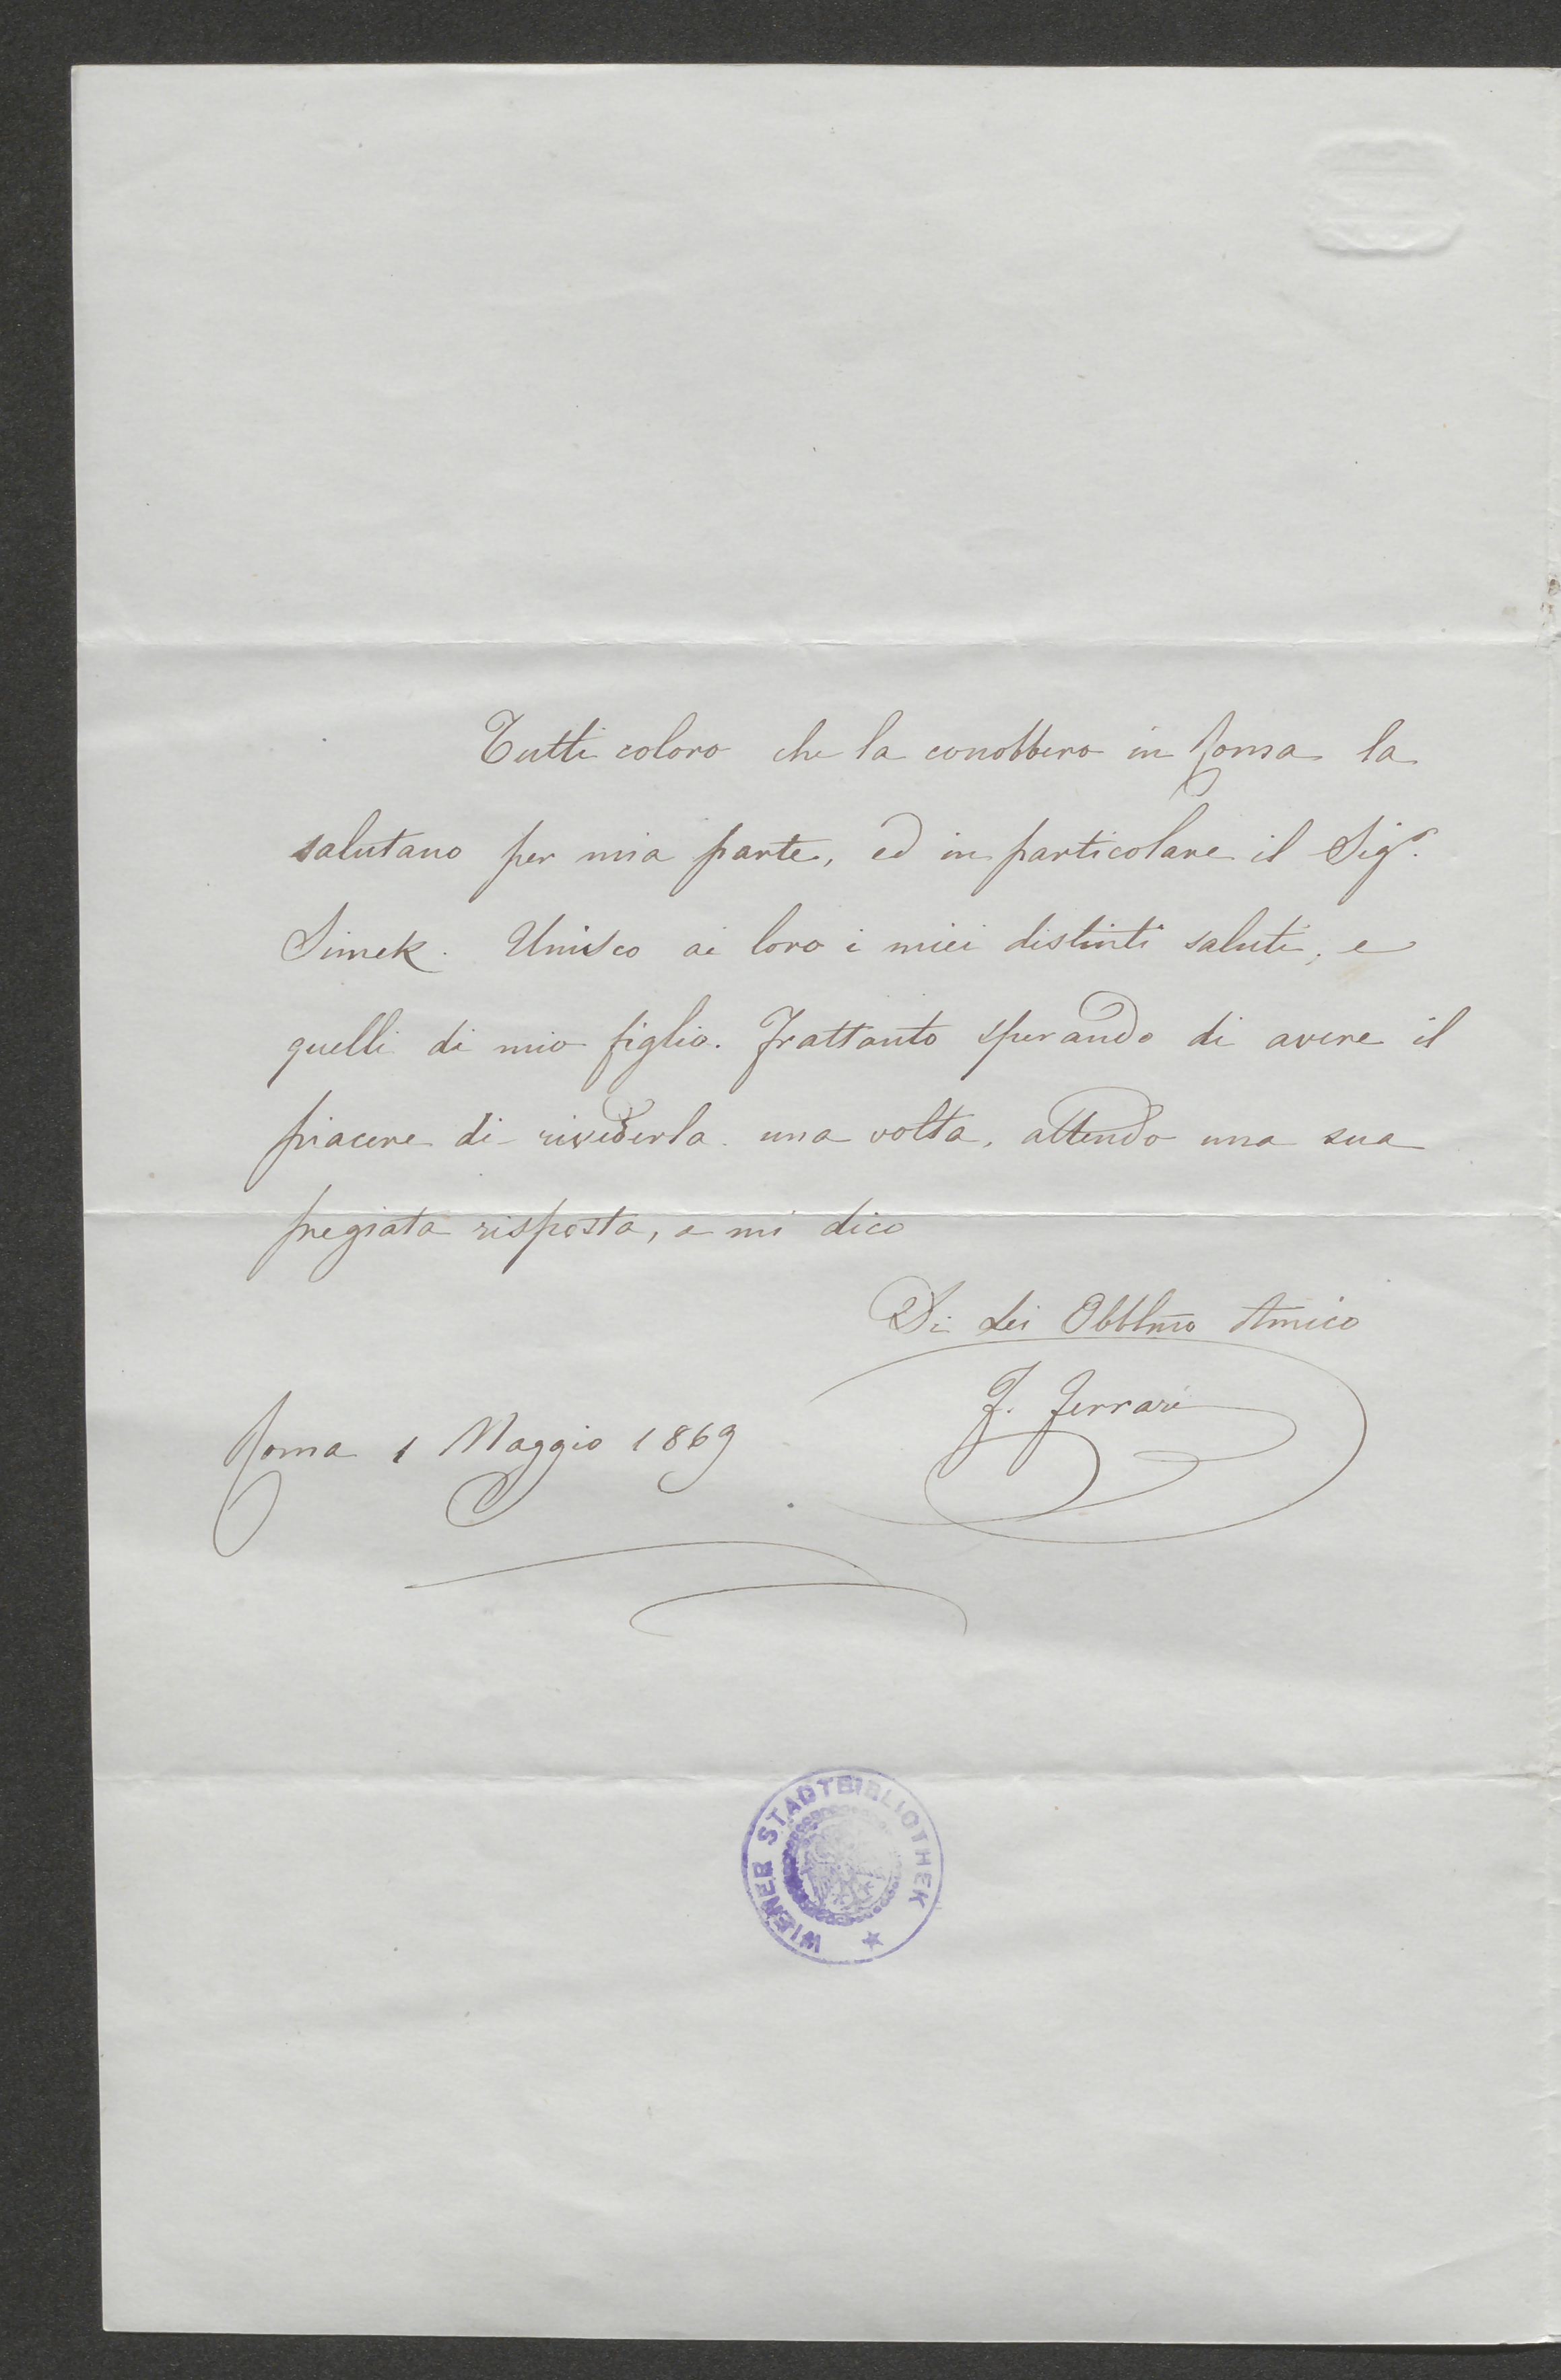 Tutti coloro che la conobbero in Roma la
salutano per mia parte, ed in particolare il Sigr.
Simek. Unisco ai loro i miei distinti saluti, e
quelli di mio figlio. Frattanto sperando di avere il
piacere di rivederla una volta, attendo una sua
pregiata risposta, e mi dico
Di Lei Obblmo Amico
F. Ferrari
Roma 1 Maggio 1869
WIENER STADTBIBLIOTHEK